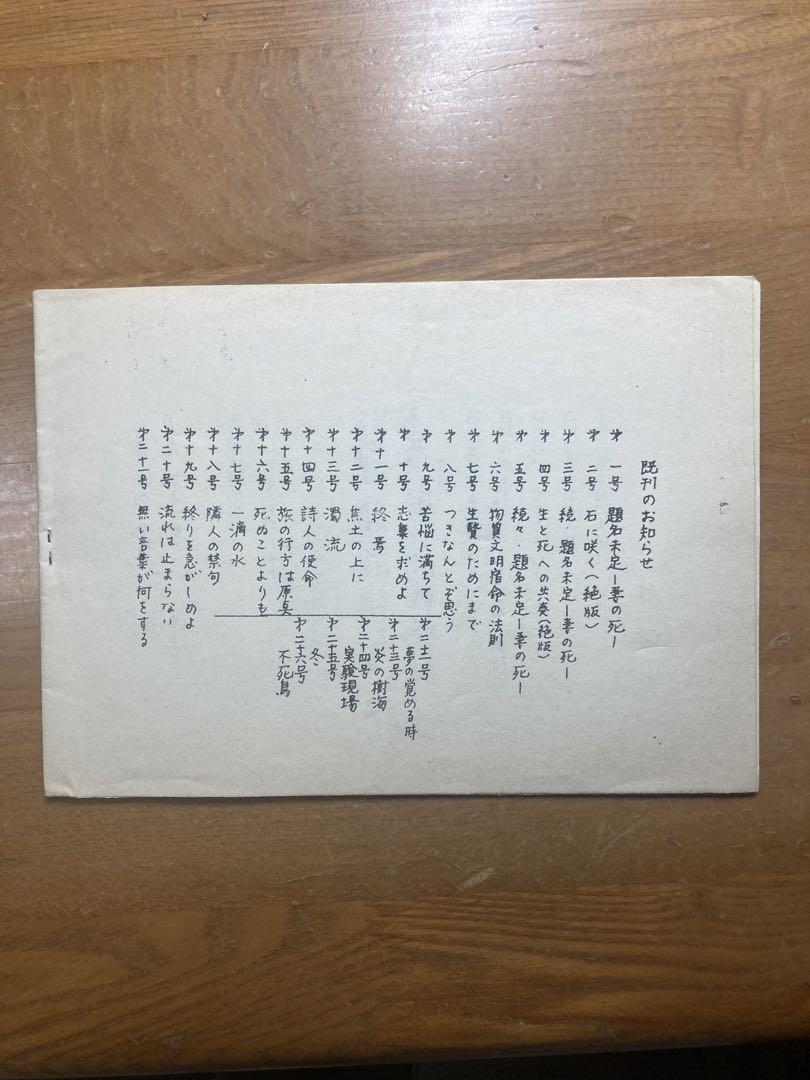 既刊のお知らせ
第一号 題名未定ー妻の死ー
第二号 石に咲く(絶版)
第三号 続・題名未定ー妻の死ー
第四号 生と死への共奏(絶版)
第五号 続々 題名未定ー妻の死ー
第六号 物質文明宿命の法則
第七号 生贄のためにまで
第八号 つきなんとぞ思う
第九号 苦悩に満ちて
第十号 志集を求めよ
第十一号 終焉
第十二号 焦土の上に
第十三号 濁流
第十四号 詩人の使命
第十五号 旅の行方は原点
第十六号 死ぬことよりも
第十七号 一滴の水
第十八号 隣人の禁句
第十九号 終りを急がしめよ
第二十号 流れは止まらない
第二十一号 無い言葉が何をする
第二十二号
夢の覚める時
第二十三号
炎の樹海
第二十四号
実験現場
第二十五号
冬
第二十六号
不死鳥